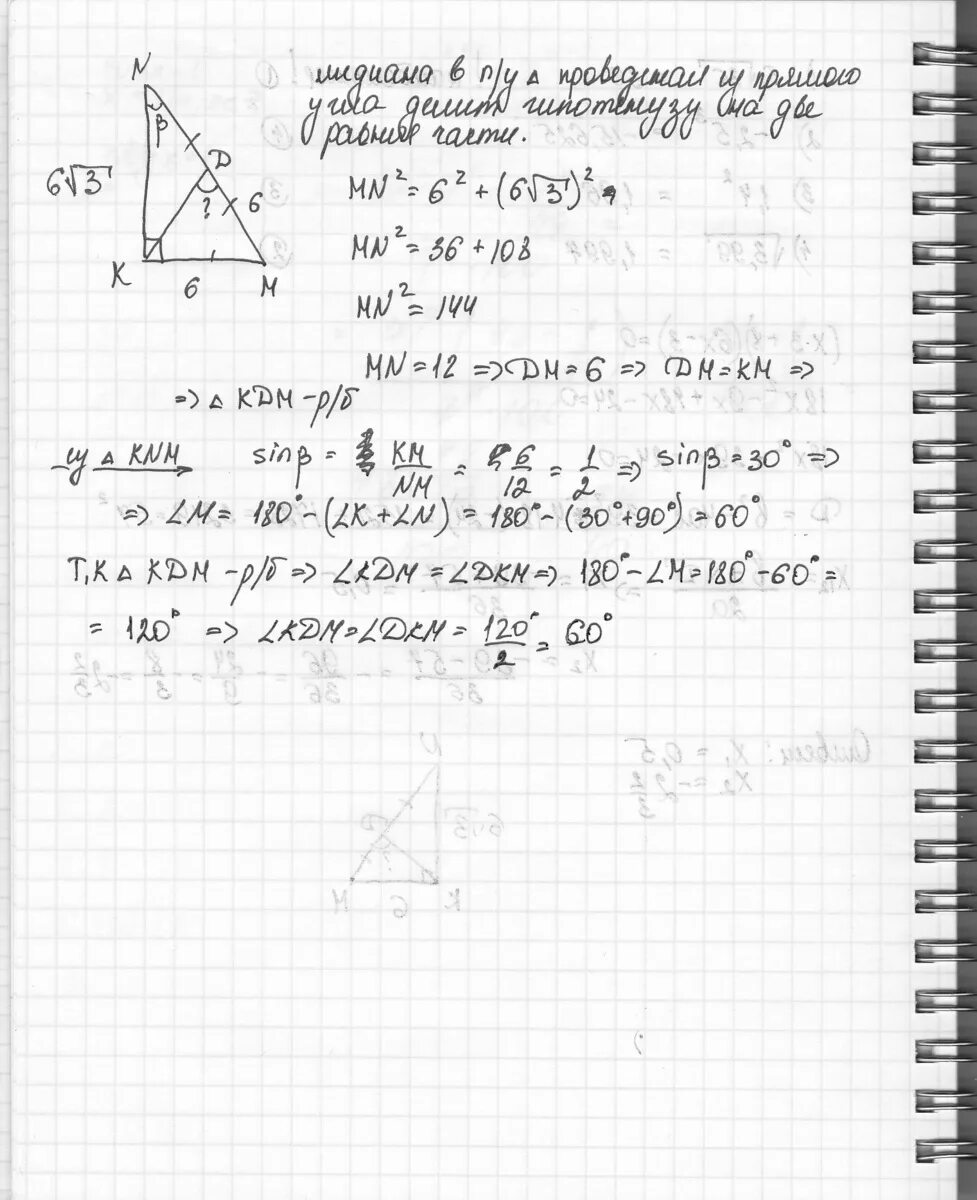 N
мидиана в п/у △ проведеная из прямого
угла делит гипотенузу на две
равные части.
β
D
6√3
? 6
K 6 M
MN² = 6² + (6√3)²
MN² = 36 + 108
MN² = 144
MN = 12 => DM = 6 => DM = KM =>
=> △ KDM – р/б
из △ KNM sinβ = KM/NM = 6/12 = 1/2 => sinβ = 30° =>
=> ∠M = 180° – (∠K + ∠N) = 180° – (30° + 90°) = 60°
Т,К △ KDM – р/б => ∠KDM = ∠DKM => 180° – ∠M = 180° – 60° =
= 120° => ∠KDM = ∠DKM = 120°/2 = 60°